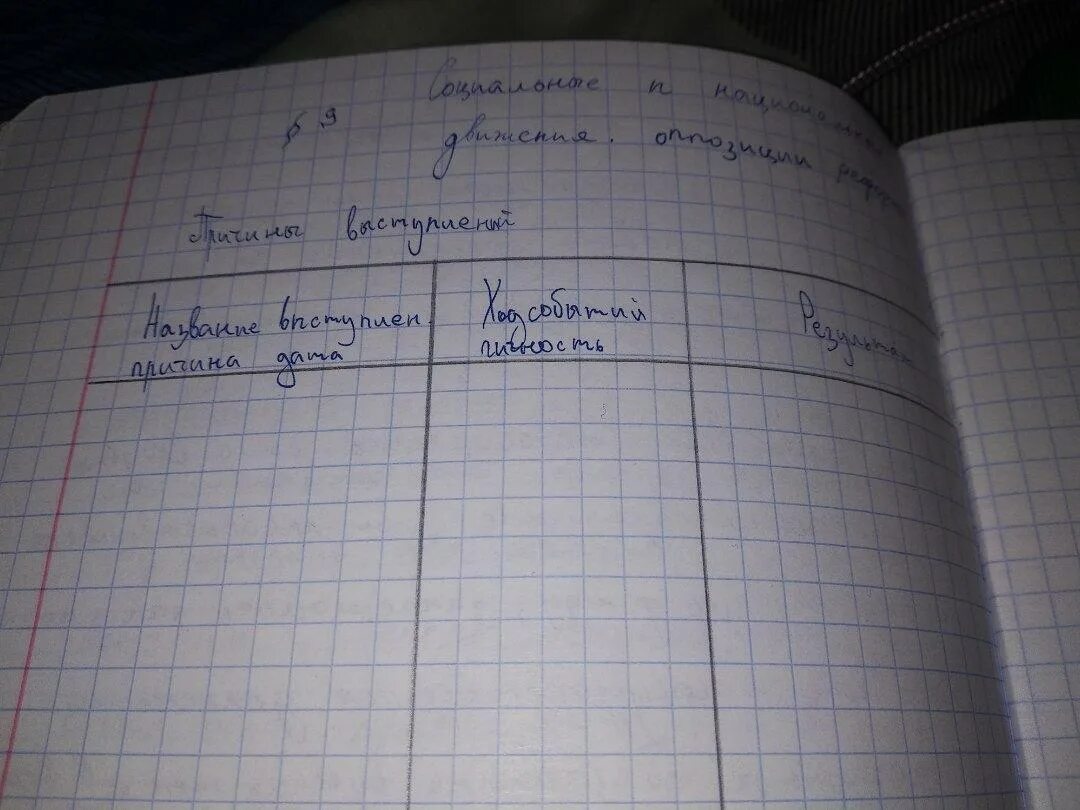 § 9 Социальные и национальные
движения. оппозиции реформ
Причины выступлений
Название выступлен.
причина дата
Ход событий
личность
Результат